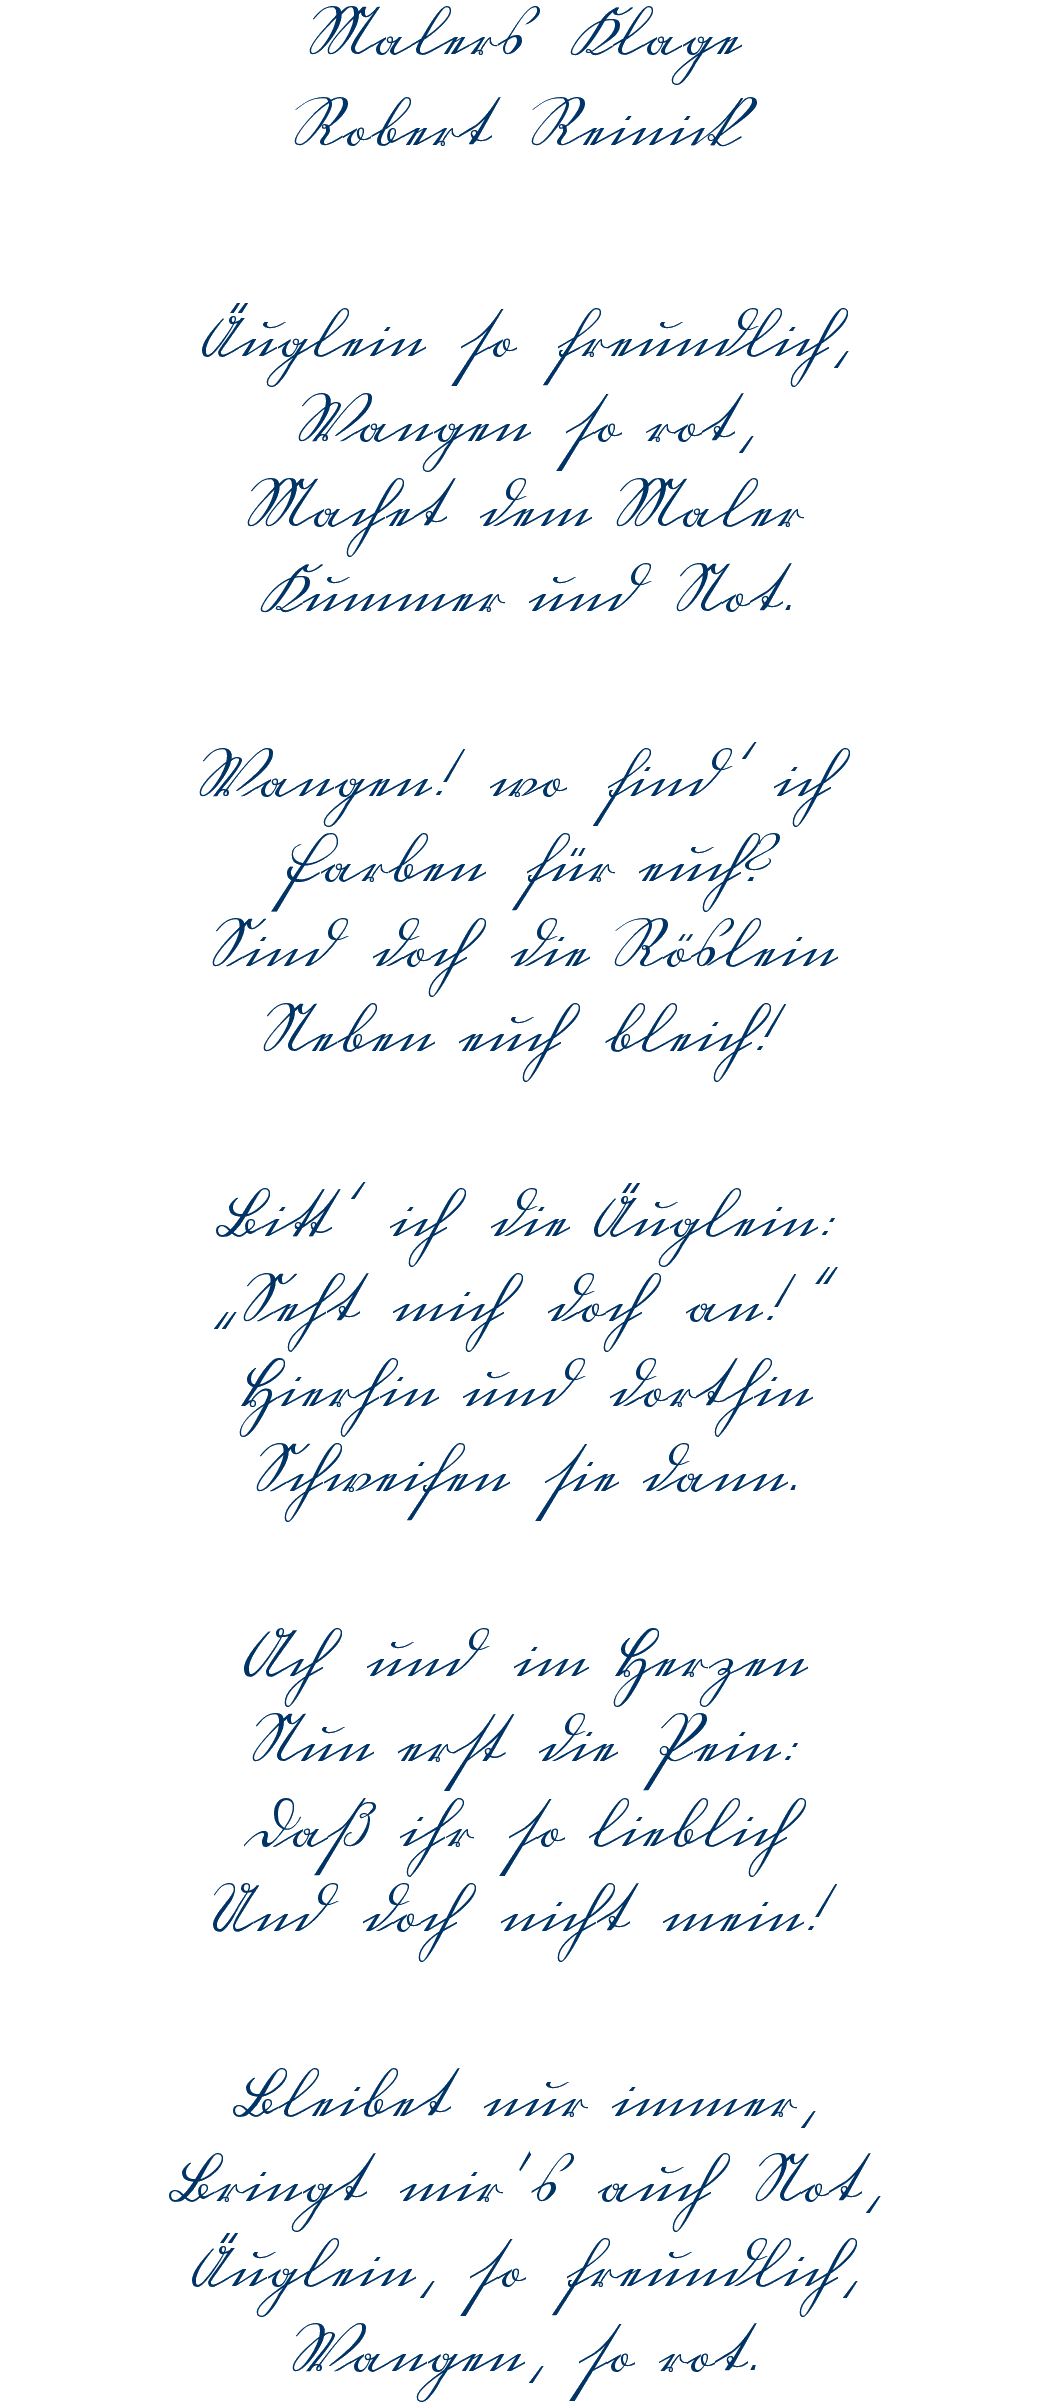 Malers Klage
Robert Reinick
Äuglein so freundlich,
Wangen so rot,
Machet dem Maler
Kummer und Not.
Wangen! wo find' ich
Farben für euch?
Sind doch die Röslein
Neben euch bleich!
Bitt' ich die Äuglein:
„Seht mich doch an!“
Hierhin und dorthin
Schweifen sie dann.
Ach und im Herzen
Nun erst die Pein:
Daß ihr so lieblich
Und doch nicht mein!
Bleibet nur immer,
Bringt mir's auch Not,
Äuglein, so freundlich,
Wangen, so rot.